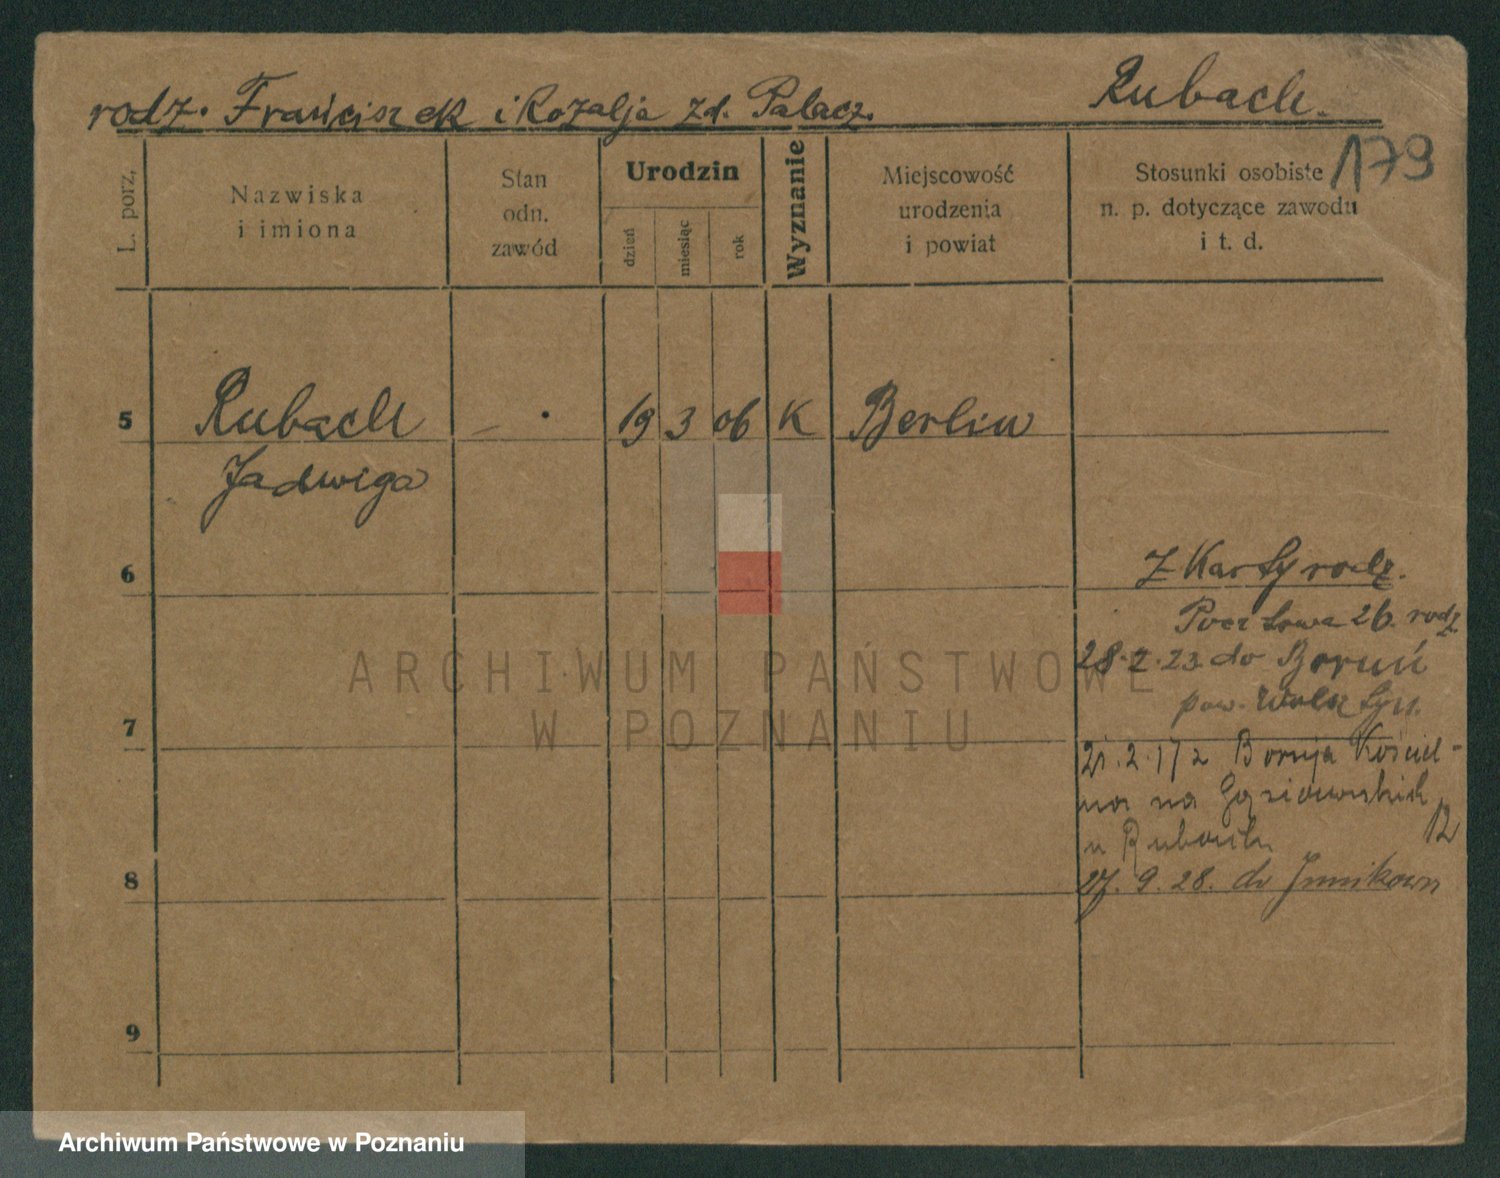 Rubach.
rodz. Franciszek i Rozalja zd. Palacz.
179
L. porz.
Nazwiska
i imiona
Stan
odn.
zawód
Urodzin
dzień
miesiąc
rok
Wyznanie
Miejscowość
urodzenia
i powiat
Stosunki osobiste
n. p. dotyczące zawodu
i t. d.
5
Rubach
19 3 06 K Berlin
Jadwiga
6
Z Karty rodz.
Pocztowa 26. rodz.
28.2.23 do Boruń
pow. Wolsztyn.
7
21.2.17 z Boruja Kościel-
na na Gąsiorowskich 12
u Rubach
8
27.9.28. do Junikowa
9
ARCHIWUM PAŃSTWOWE
W POZNANIU
Archiwum Państwowe w Poznaniu